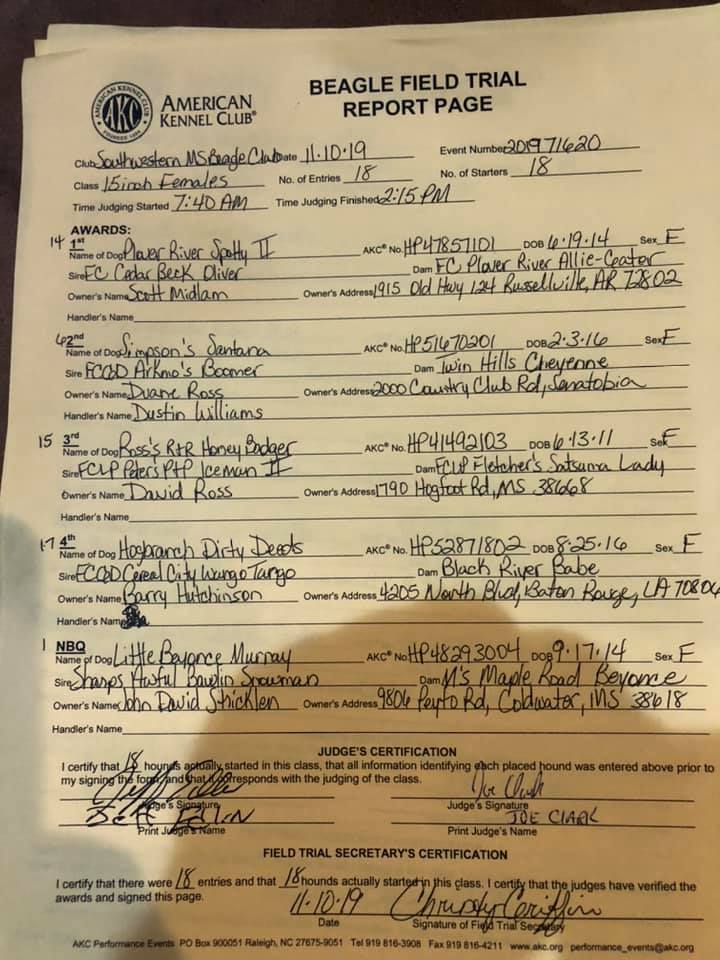 BEAGLE FIELD TRIAL
REPORT PAGE
AMERICAN KENNEL CLUB FOUNDED 1884
AKC
AMERICAN
KENNEL CLUB®
Club Southwestern MS Beagle Club Date 11-10-19 Event Number 2019771620
Class 15 inch Females No. of Entries 18 No. of Starters 18
Time Judging Started 7:40 AM Time Judging Finished 2:15 PM
AWARDS:
14 1st
Name of Dog Plover River Spotty II AKC® No. HP47857101 DOB 6-19-14 Sex F
Sire FC Cedar Beck Oliver Dam FC Plover River Allie-Gator
Owner's Name Scott Midlam Owner's Address 1915 Old Hwy 124 Russellville, AR 72802
Handler's Name
6 2nd
Name of Dog Simpson's Santana AKC® No. HP51670201 DOB 2-3-16 Sex F
Sire FCGD Arkmo's Boomer Dam Twin Hills Cheyenne
Owner's Name Duane Ross Owner's Address 2000 Country Club Rd, Senatobia
Handler's Name Dustin Williams
15 3rd
Name of Dog Ross's R+R Honey Badger AKC® No. HP41492103 DOB 6-13-11 Sex F
Sire FCLP Peter's P+P Iceman II Dam FCLP Fletcher's Satsuma Lady
Owner's Name David Ross Owner's Address 1790 Hogfoot Rd, MS 38668
Handler's Name
17 4th
Name of Dog Hogbranch Dirty Deeds AKC® No. HP52871802 DOB 8-25-16 Sex F
Sire FCGD Cereal City Wango Tango Dam Black River Babe
Owner's Name Barry Hutchinson Owner's Address 4205 North Blvd, Baton Rouge, LA 70806
Handler's Name
1 NBQ
Name of Dog Little Beyonce Murray AKC® No. HP48293004 DOB 9-17-14 Sex F
Sire Sharps Awful Bawlin Snowman Dam M's Maple Road Beyonce
Owner's Name John David Stricklen Owner's Address 9806 Peyto Rd, Coldwater, MS 38618
Handler's Name
JUDGE'S CERTIFICATION
I certify that 18 hounds actually started in this class, that all information identifying each placed hound was entered above prior to
my signing the form, and that it corresponds with the judging of the class.
Joe Clark
Judge's Signature Judge's Signature
JOE CLARK
Print Judge's Name Print Judge's Name
FIELD TRIAL SECRETARY'S CERTIFICATION
I certify that there were 18 entries and that 18 hounds actually started in this class. I certify that the judges have verified the
awards and signed this page.
11-10-19 Christy Griffin
Date Signature of Field Trial Secretary
AKC Performance Events PO Box 900051 Raleigh, NC 27675-9051 Tel 919 816-3908 Fax 919 816-4211 www.akc.org performance_events@akc.org